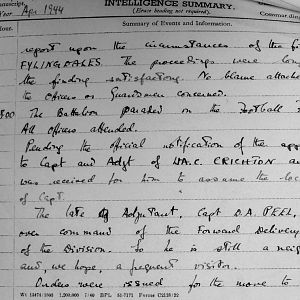 INTELLIGENCE SUMMARY.
(Erase heading not required).
Year Apr. 1944
Summary of Events and Information.
report upon the circumstances of the
FYLINGDALES. The proceedings were
the finding satisfactory. No blame attache
the Officers or Guardsmen concerned.
The Battalion paraded on the Football
All officers attended.
Pending the official notification of the
to Capt and Adjt of CRICHTON
was received for him to assume the
of Capt.
The late Adjutant, Capt D.A. PEEL,
over command of the Forward Delivery
of the Division. So he is still a
and, we hope, a frequent visitor.
Orders were issued for the move to